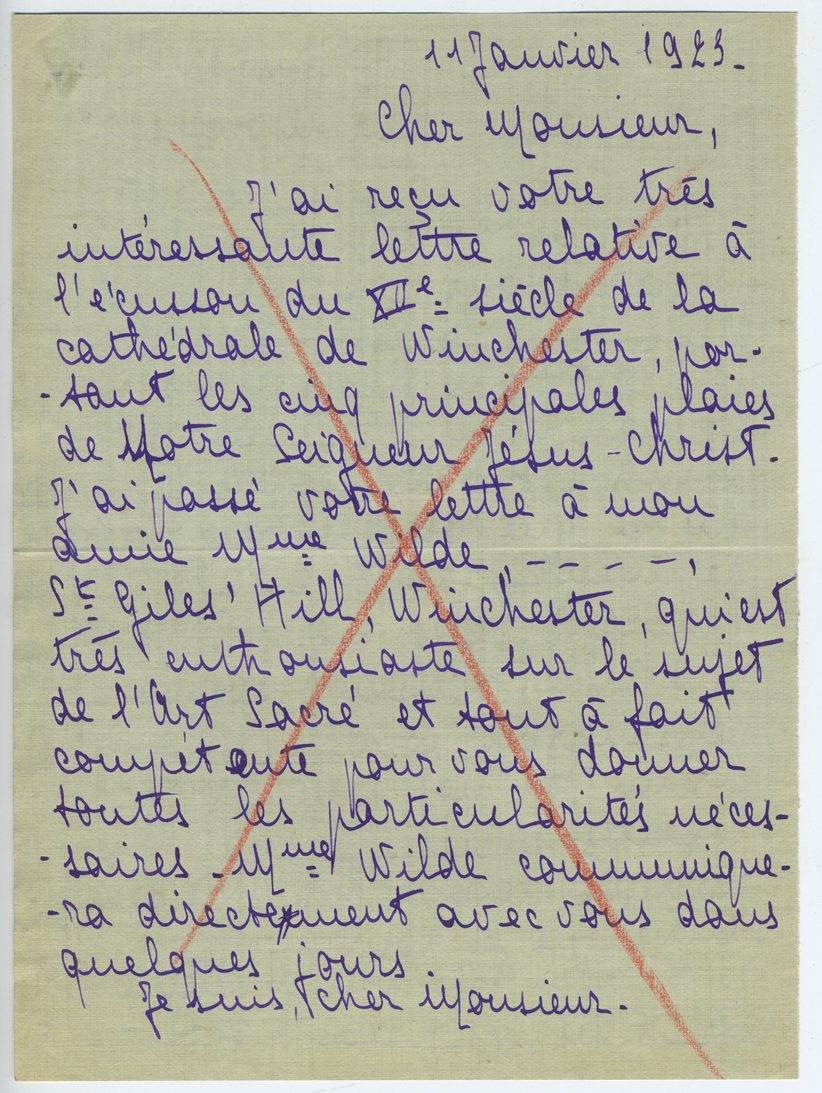 11 Janvier 1923.
Cher Monsieur,
J'ai reçu votre très
intéressante lettre relative à
l'écusson du XIIe siècle de la
cathédrale de Winchester, por-
-tant les cinq principales plaies
de Notre Seigneur Jésus-Christ.
J'ai passé votre lettre à mon
amie Mme Wilde, - - - - ,
St Giles' Hill, Winchester, qui est
très enthousiaste sur le sujet
de l'Art Sacré et tout à fait
compétente pour vous donner
toutes les particularités néces-
-saires. Mme Wilde communique-
-ra directement avec vous dans
quelques jours
Je suis, cher Monsieur.